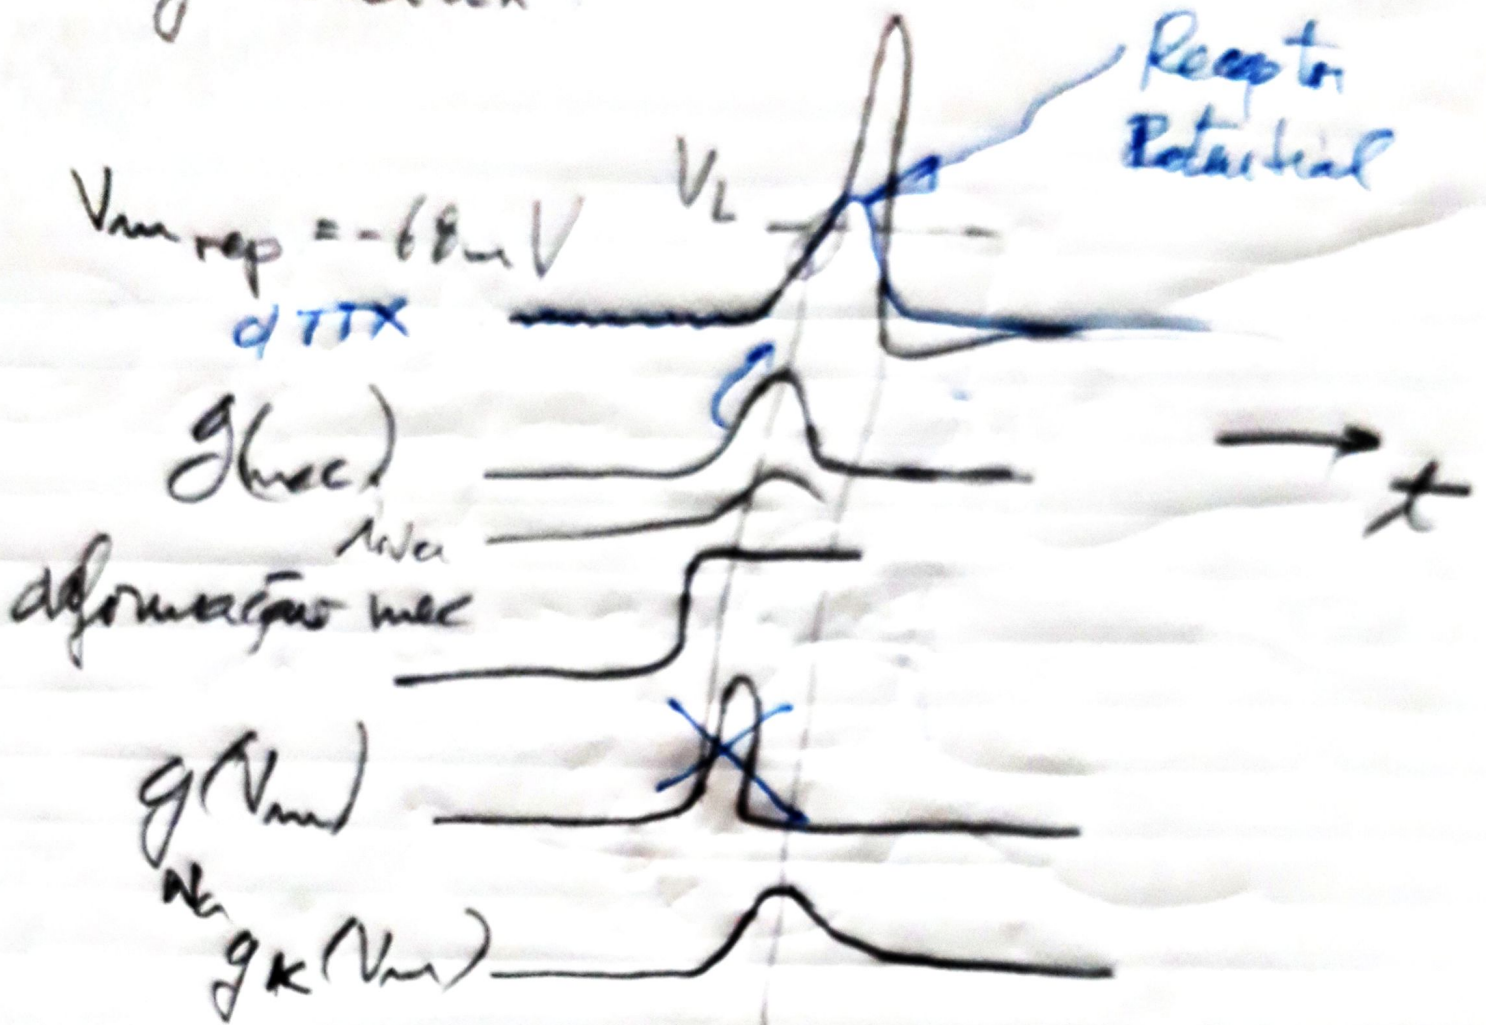 Receptor
Potential
VL
Vm rep = -68mV
c/ TTX
g(mec)
t
deformação mec
g(Vm)
Na
gK(Vm)